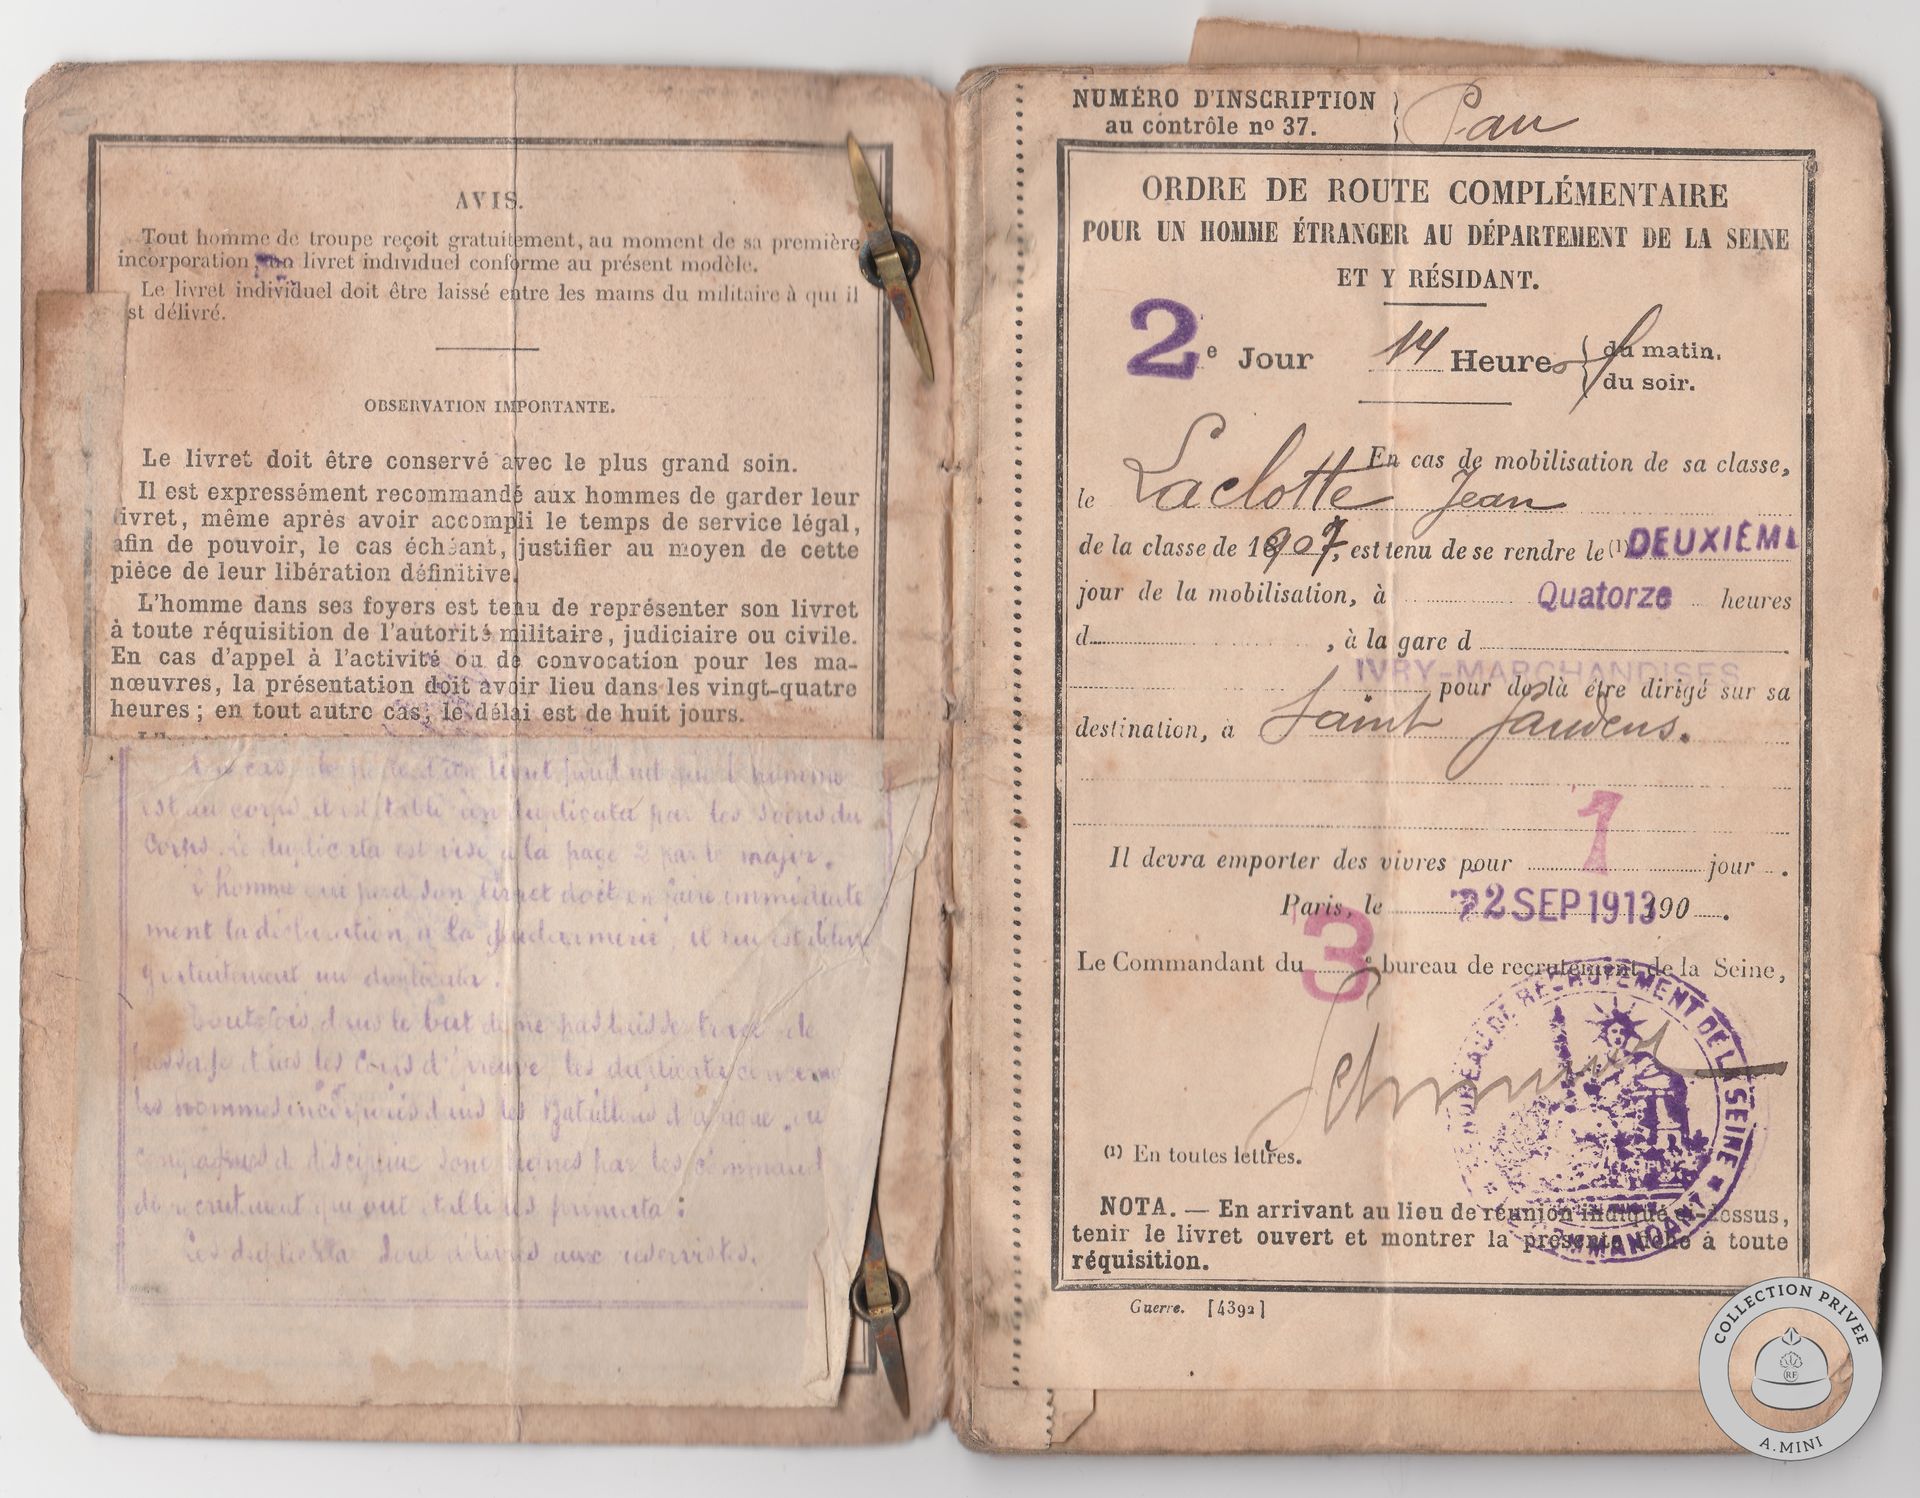 AVIS.
Tout homme de troupe reçoit gratuitement, au moment de sa première
incorporation, un livret individuel conforme au présent modèle.
Le livret individuel doit être laissé entre les mains du militaire à qui il
st délivré.
OBSERVATION IMPORTANTE.
Le livret doit être conservé avec le plus grand soin.
Il est expressément recommandé aux hommes de garder leur
livret, même après avoir accompli le temps de service légal,
afin de pouvoir, le cas échéant, justifier au moyen de cette
pièce de leur libération définitive.
L'homme dans ses foyers est tenu de représenter son livret
à toute réquisition de l'autorité militaire, judiciaire ou civile.
En cas d'appel à l'activité ou de convocation pour les ma-
nœuvres, la présentation doit avoir lieu dans les vingt-quatre
heures ; en tout autre cas, le délai est de huit jours.
cas de perte d'un livret pendant que l'homme
est au corps il est établi un duplicata par les soins du
Corps. Le duplicata est visé à la page 2 par le major.
L'homme qui perd son livret doit en faire immédiate
ment la déclaration à la Gendarmerie, il lui est délivré
gratuitement un duplicata.
Toutefois, dans le but de ne pas laisser trace de
passage dans les Corps d'épreuve, les duplicata
les hommes incorporés dans les Bataillons d'Afrique ou
compagnies de discipline sont par les command
de recrutement qui ont établi les
Les duplicata sont délivrés aux réservistes.
NUMÉRO D'INSCRIPTION
au contrôle nº 37.
Pau
ORDRE DE ROUTE COMPLÉMENTAIRE
POUR UN HOMME ÉTRANGER AU DÉPARTEMENT DE LA SEINE
ET Y RÉSIDANT.
2e Jour 14 Heures du matin.
du soir.
En cas de mobilisation de sa classe,
le Laclotte Jean
de la classe de 1907, est tenu de se rendre le (1) DEUXIÈME
jour de la mobilisation, à Quatorze heures
d , à la gare d
IVRY-MARCHANDISES
pour de là être dirigé sur sa
destination, à Saint Gaudens.
Il devra emporter des vivres pour 1 jour .
Paris, le 22 SEP 1913 190 .
Le Commandant du 3e bureau de recrutement de la Seine,
BUREAU DE RECRUTEMENT DE LA SEINE
COMMANDANT
(1) En toutes lettres.
NOTA. — En arrivant au lieu de réunion indiqué ci-dessus,
tenir le livret ouvert et montrer la présente fiche à toute
réquisition.
Guerre. [4392]
COLLECTION PRIVEE
RF
A.MINI